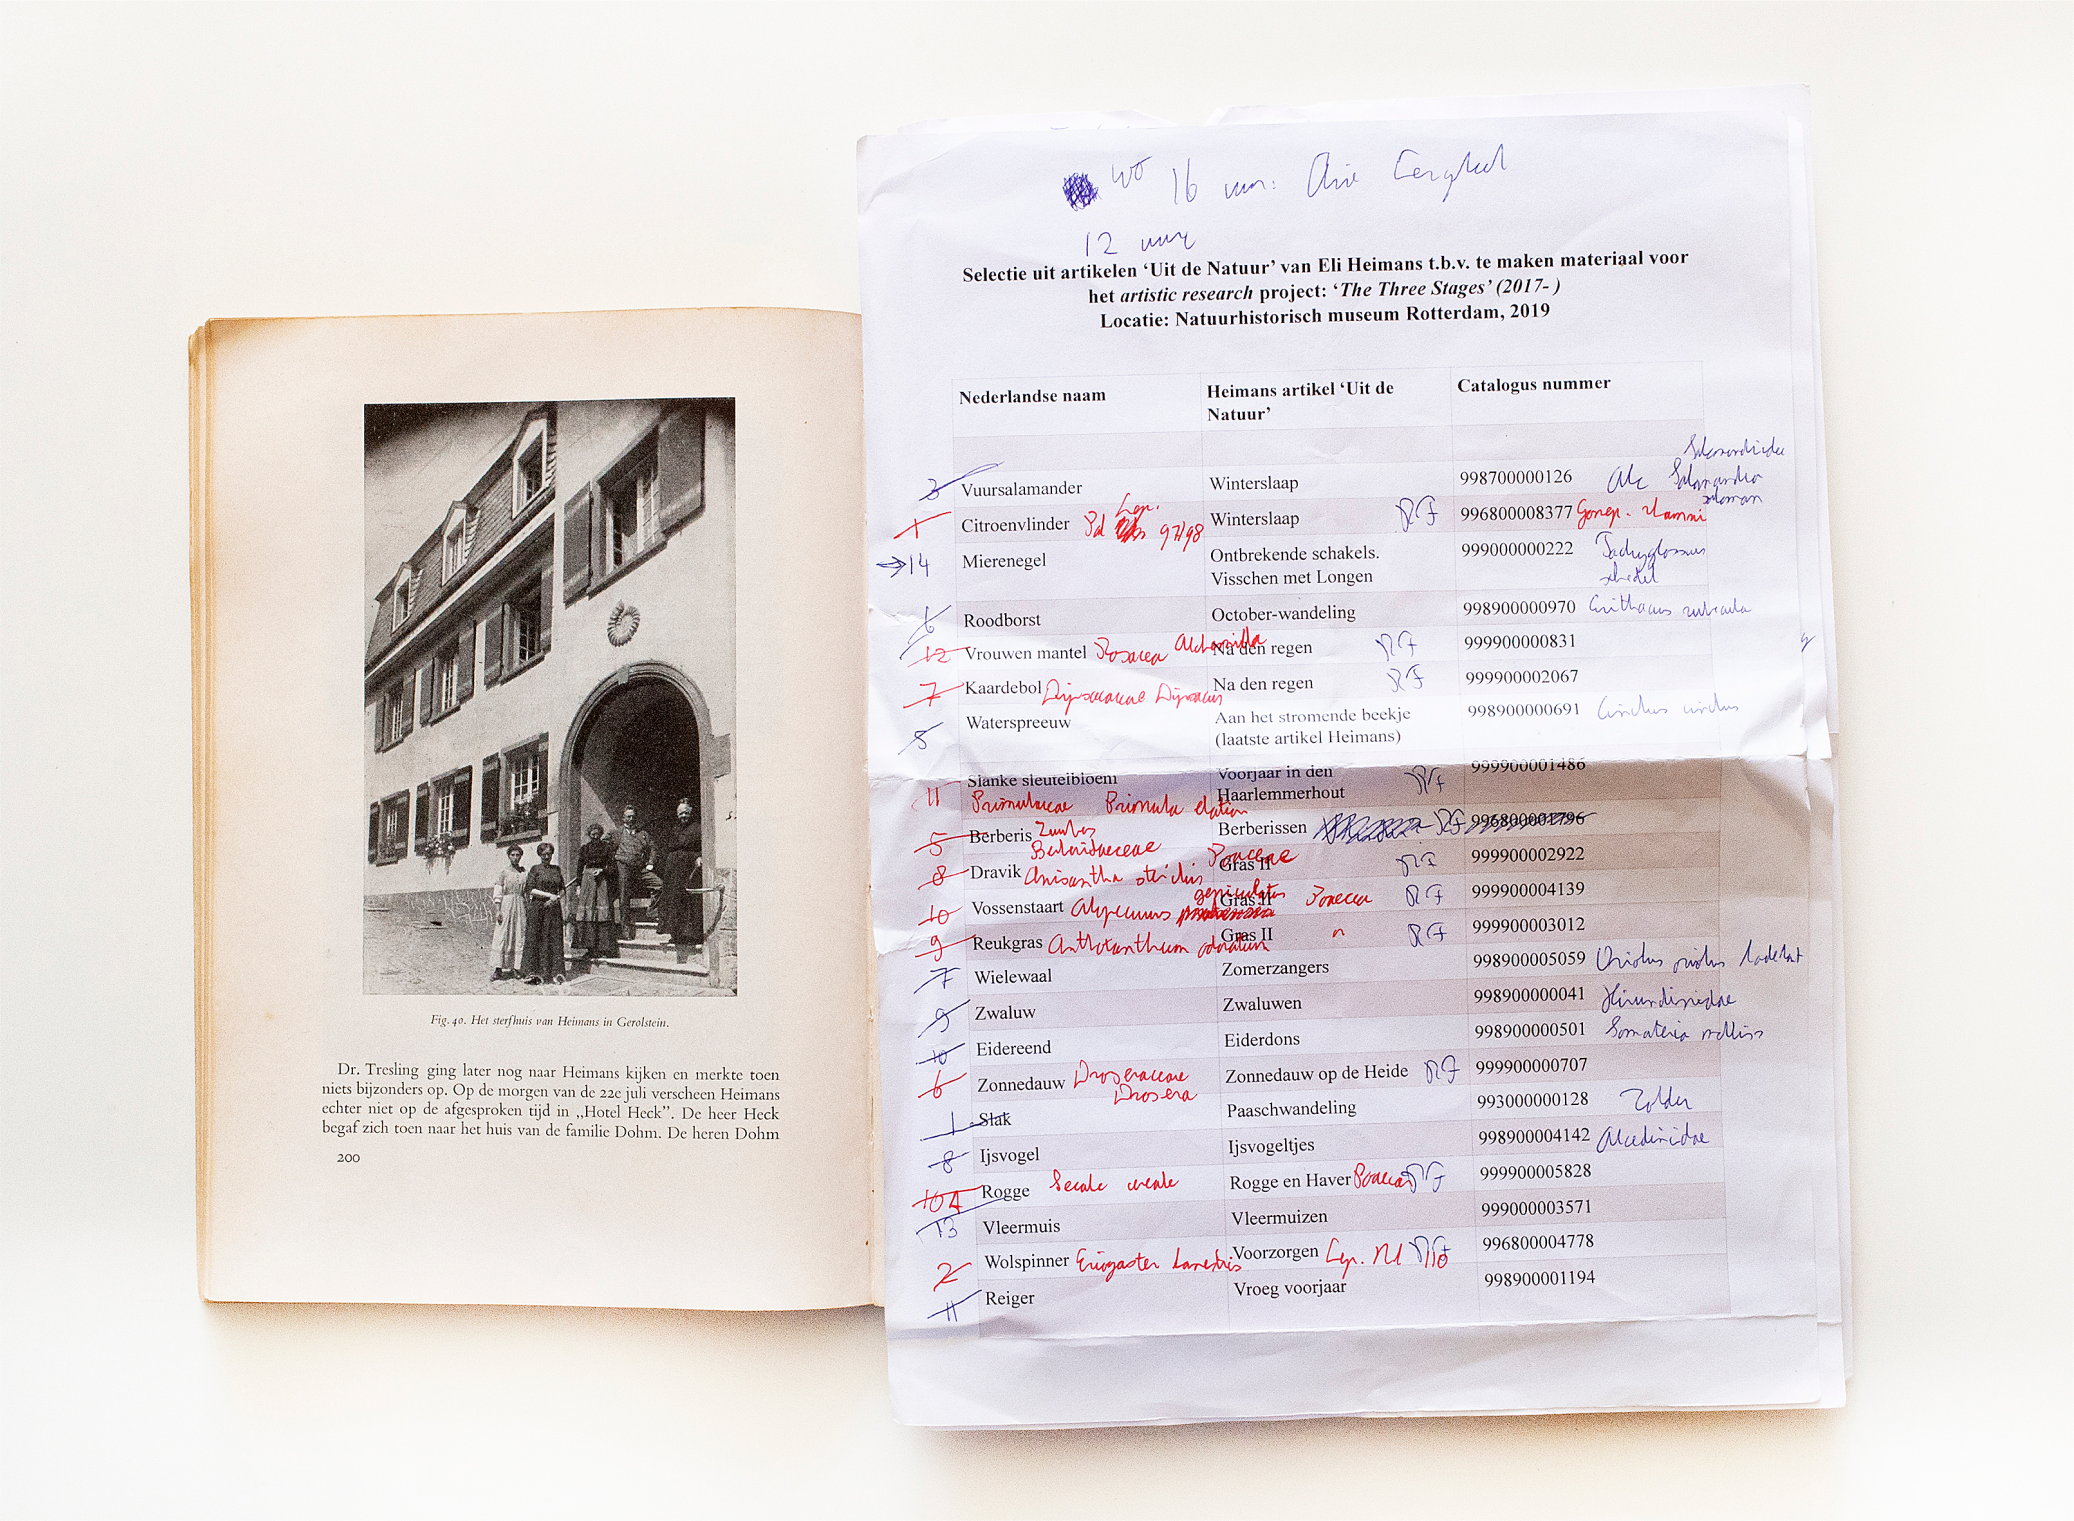 Fig. 40. Het sterfhuis van Heimans in Gerolstein.
Dr. Tresling ging later nog naar Heimans kijken en merkte toen
niets bijzonders op. Op de morgen van de 22e juli verscheen Heimans
echter niet op de afgesproken tijd in „Hotel Heck”. De heer Heck
begaf zich toen naar het huis van de familie Dohm. De heren Dohm
200
wo 16 uur:
12 uur
Selectie uit artikelen ‘Uit de Natuur’ van Eli Heimans t.b.v. te maken materiaal voor
het artistic research project: ‘The Three Stages’ (2017- )
Locatie: Natuurhistorisch museum Rotterdam, 2019
Nederlandse naam Heimans artikel ‘Uit de Natuur’ Catalogus nummer
3 Vuursalamander Winterslaap 998700000126 Alc Salamandridae Salamandra
1 Citroenvlinder Lep. 97/98 Winterslaap 996800008377 Gonep. rhamni
14 Mierenegel Ontbrekende schakels. 999000000222 Tachyglossus
Visschen met Longen schedel
6 Roodborst October-wandeling 998900000970 Erithacus rubecula
12 Vrouwen mantel Rosacea Alchemilla Na den regen 999900000831
7 Kaardebol Dipsacaceae Dipsacus Na den regen 999900002067
5 Waterspreeuw Aan het stromende beekje 998900000691 Cinclus cinclus
(laatste artikel Heimans)
11 Slanke sleutelbloem Voorjaar in den 999900001486
Primulaceae Primula elatior Haarlemmerhout
5 Berberis Berberissen 99680001796
Berberidaceae Poaceae
8 Dravik Anisantha sterilis Gras II 999900002922
10 Vossenstaart Alopecurus geniculatus Gras II Poacea 999900004139
9 Reukgras Anthoxanthum odoratum Gras II " 999900003012
7 Wielewaal Zomerzangers 998900005059 Oriolus oriolus
9 Zwaluw Zwaluwen 998900000041 Hirundinidae
10 Eidereend Eiderdons 998900000501 Somateria mollis
6 Zonnedauw Droseraceae Zonnedauw op de Heide 999900000707
Drosera
1 Slak Paaschwandeling 993000000128 Zolder
8 Ijsvogel Ijsvogeltjes 998900004142 Alcedinidae
10A Rogge Secale cereale Rogge en Haver Poaceae 999900005828
13 Vleermuis Vleermuizen 999000003571
2 Wolspinner Eriogaster lanestris Voorzorgen Lep. Nl 996800004778
11 Reiger Vroeg voorjaar 998900001194